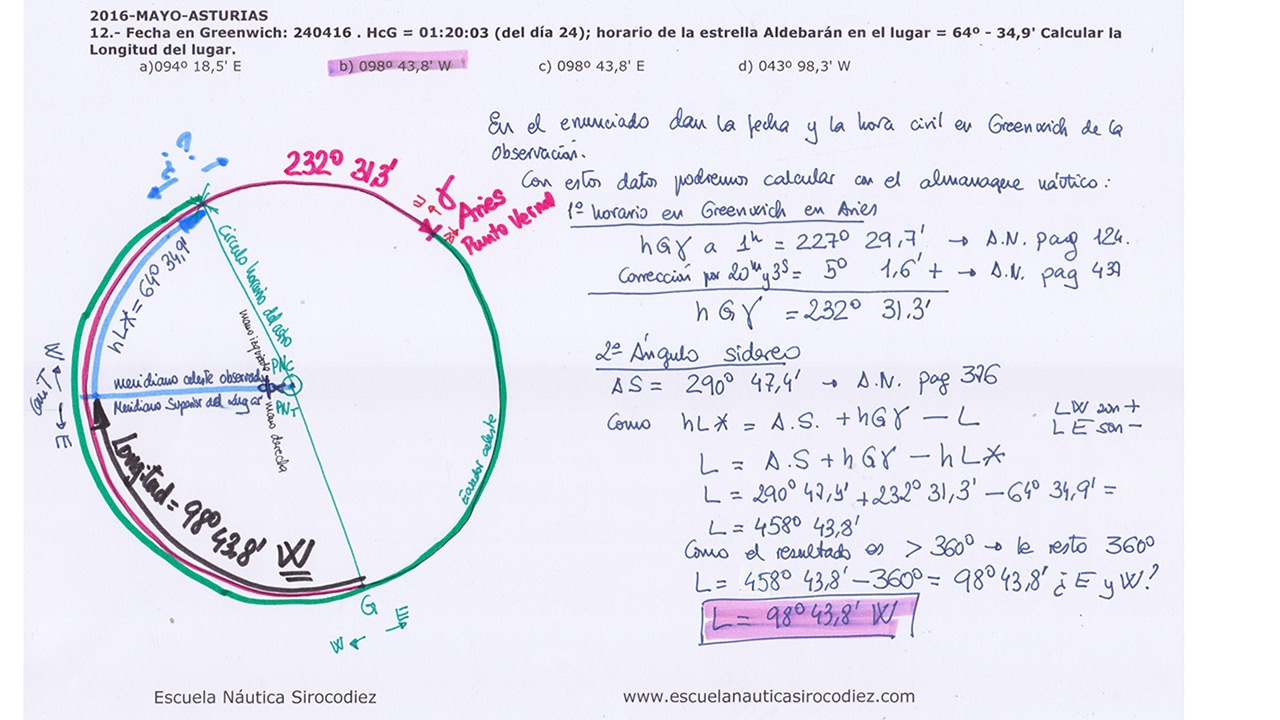 2016-MAYO-ASTURIAS
12.- Fecha en Greenwich: 240416 . HcG = 01:20:03 (del día 24); horario de la estrella Aldebarán en el lugar = 64º - 34,9' Calcular la
Longitud del lugar.
a)094º 18,5' E b) 098º 43,8' W c) 098º 43,8' E d) 043º 98,3' W
En el enunciado dan la fecha y la hora civil en Greenwich de la
observación.
Con estos datos podremos calcular con el almanaque náutico:
1º horario en Greenwich en Aries
hGɤ a 1ʰ = 227º 29,7' → A.N. pag 124.
Corrección por 20ᵐ y 3ˢ = 5º 1,6' + → A.N. pag 439
hGɤ = 232º 31.3'
2º Ángulo sidereo
AS = 290º 47,4' → A.N. pag 376
Como hL* = A.S. + hGɤ - L
LW son +
LE son -
L = A.S + hGɤ - hL*
L = 290º 47,4' + 232º 31,3' - 64º 34,9' =
L = 458º 43,8'
Como el resultado es > 360º → le resto 360º
L = 458º 43,8' - 360º = 98º 43,8' ¿E y W?
L = 98º 43,8' W
¿?
232º 31,3'
ɤ
Aries
Punto Vernal
Circulo horario del astro
hL* = 64º 34,9'
mano izquierda
PNC
meridiano celeste observador
Meridiano Superior del lugar
PNT
mano derecha
W
E
Longitud = 98º 43,8' W
Ecuador celeste
G
W E
Escuela Náutica Sirocodiez
www.escuelanauticasirocodiez.com